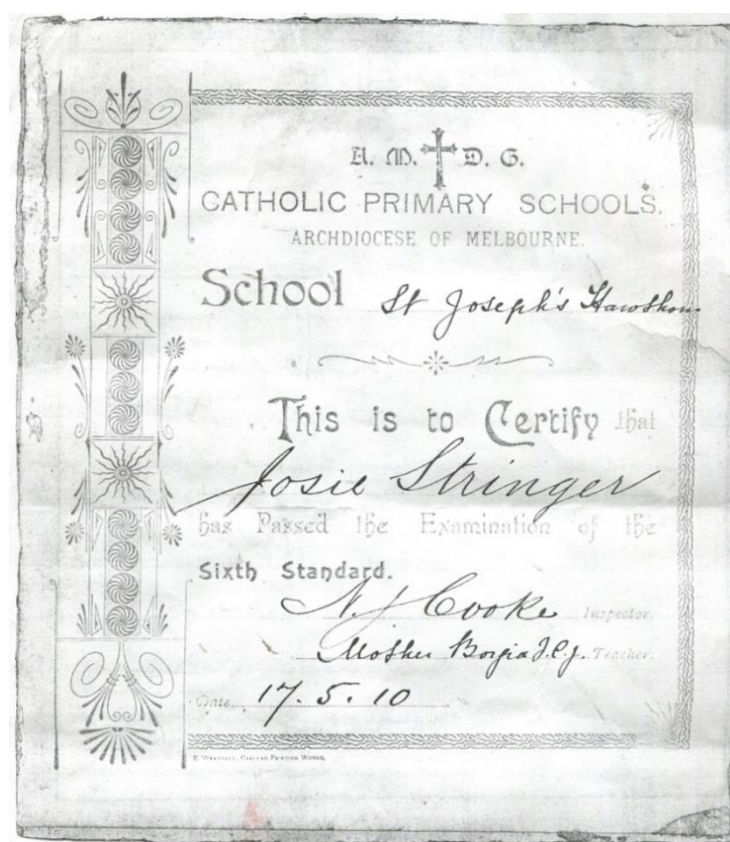 A. M. D. G.
CATHOLIC PRIMARY SCHOOLS.
ARCHDIOCESE OF MELBOURNE.
School St Joseph's Hawthorn
This is to Certify that
Josie Stringer
has Passed the Examination of the
Sixth Standard.
N. J. Cooke Inspector.
Mother Borgia F.C.J. Teacher.
Date 17.5.10
PRINTING WORKS.